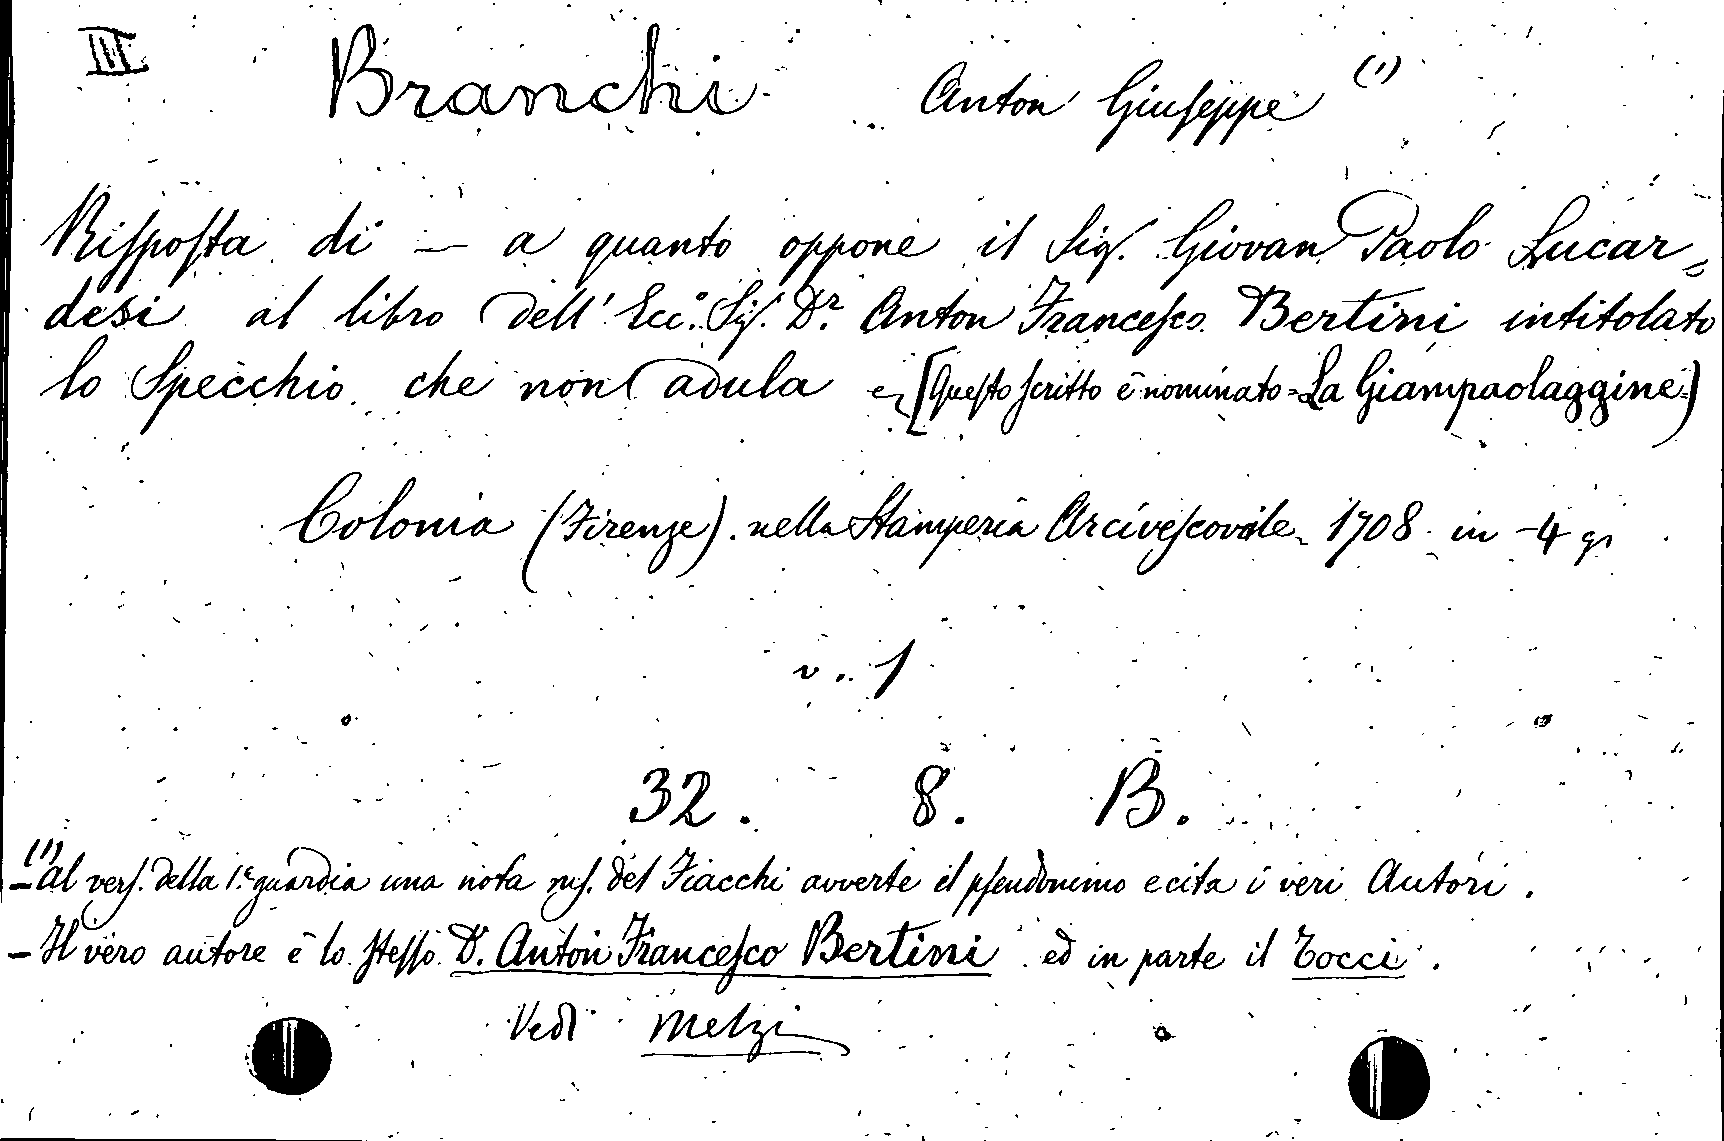 III. Branchi Anton Giuseppe (1)
Risposta di — a quanto oppone il Sig. Giovan Paolo Lucar=
desi al libro dell' Ecc.º Sig. Dr. Anton Francesco Bertini intitolato
lo Specchio che non adula [Questo scritto è nominato = La Giampaolaggine)
Colonia (Firenze). nella Stamperia Arcivescovile 1708 in -4 gr
v. 1
32. 8. B.
(1)
- al vers. della 1.ª guardia una nota ms. del Fiacchi avverte il pseudonimo e cita i veri Autori.
- Il vero autore è lo stesso D. Anton Francesco Bertini ed in parte il Tocci.
Vedi Melzi